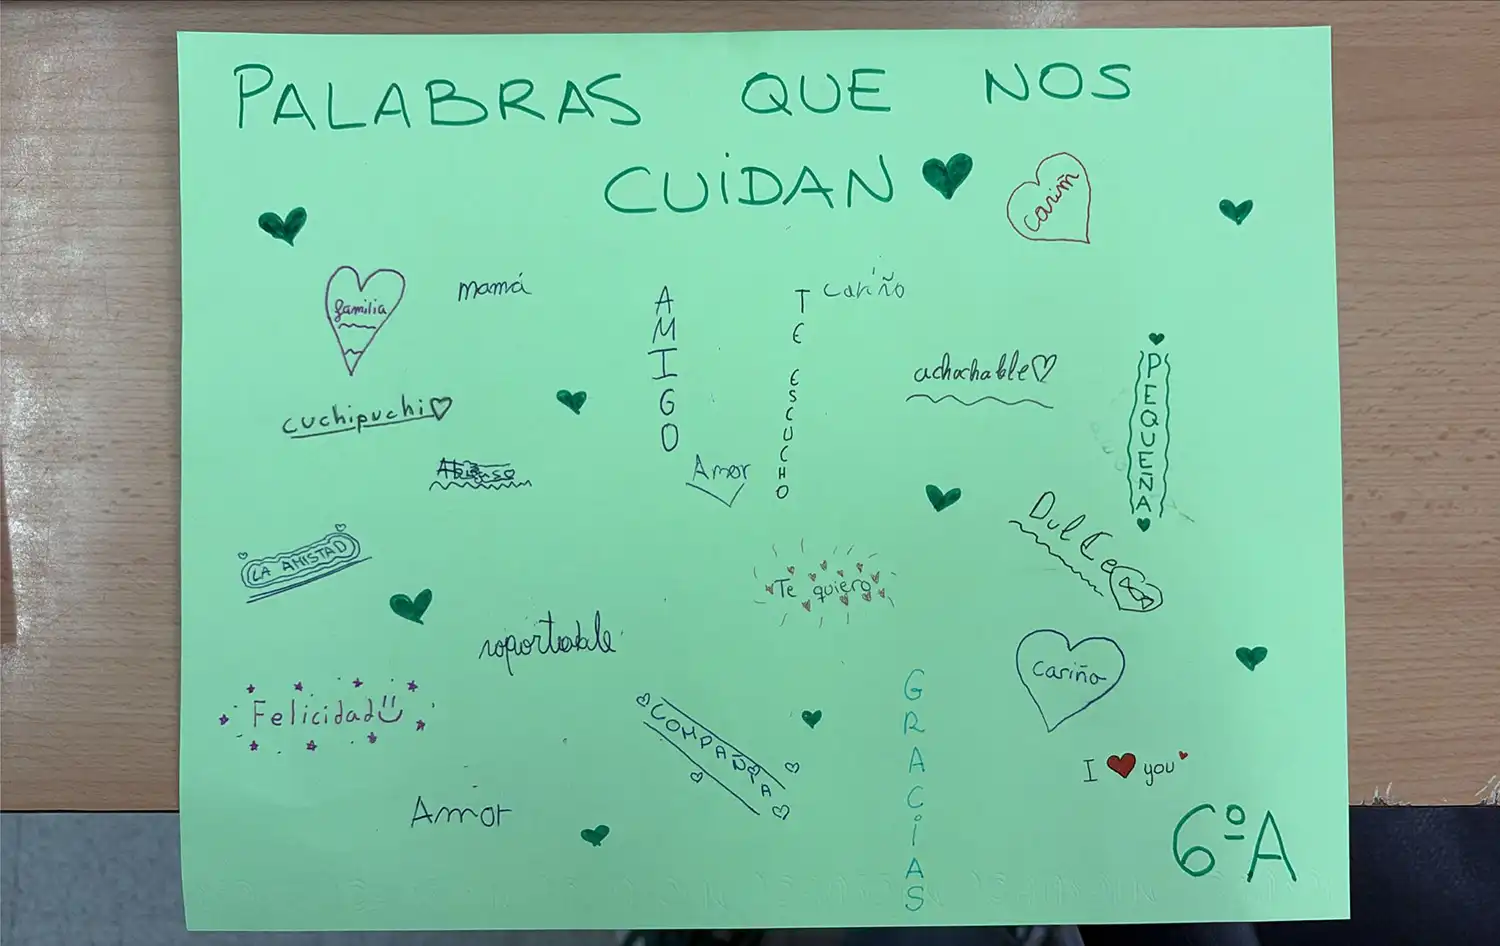 PALABRAS QUE NOS
CUiDAN
carim
familia
mamá
AMIGO
TE ESCUCHO
cariño
achochable
PEQUEÑA
cuchipuchi
Amor
DulCe
LA AMISTAD
Te quiero
soportable
cariño
Felicidad
COMPAÑIA
GRACiAS
I you
Amor
6ºA